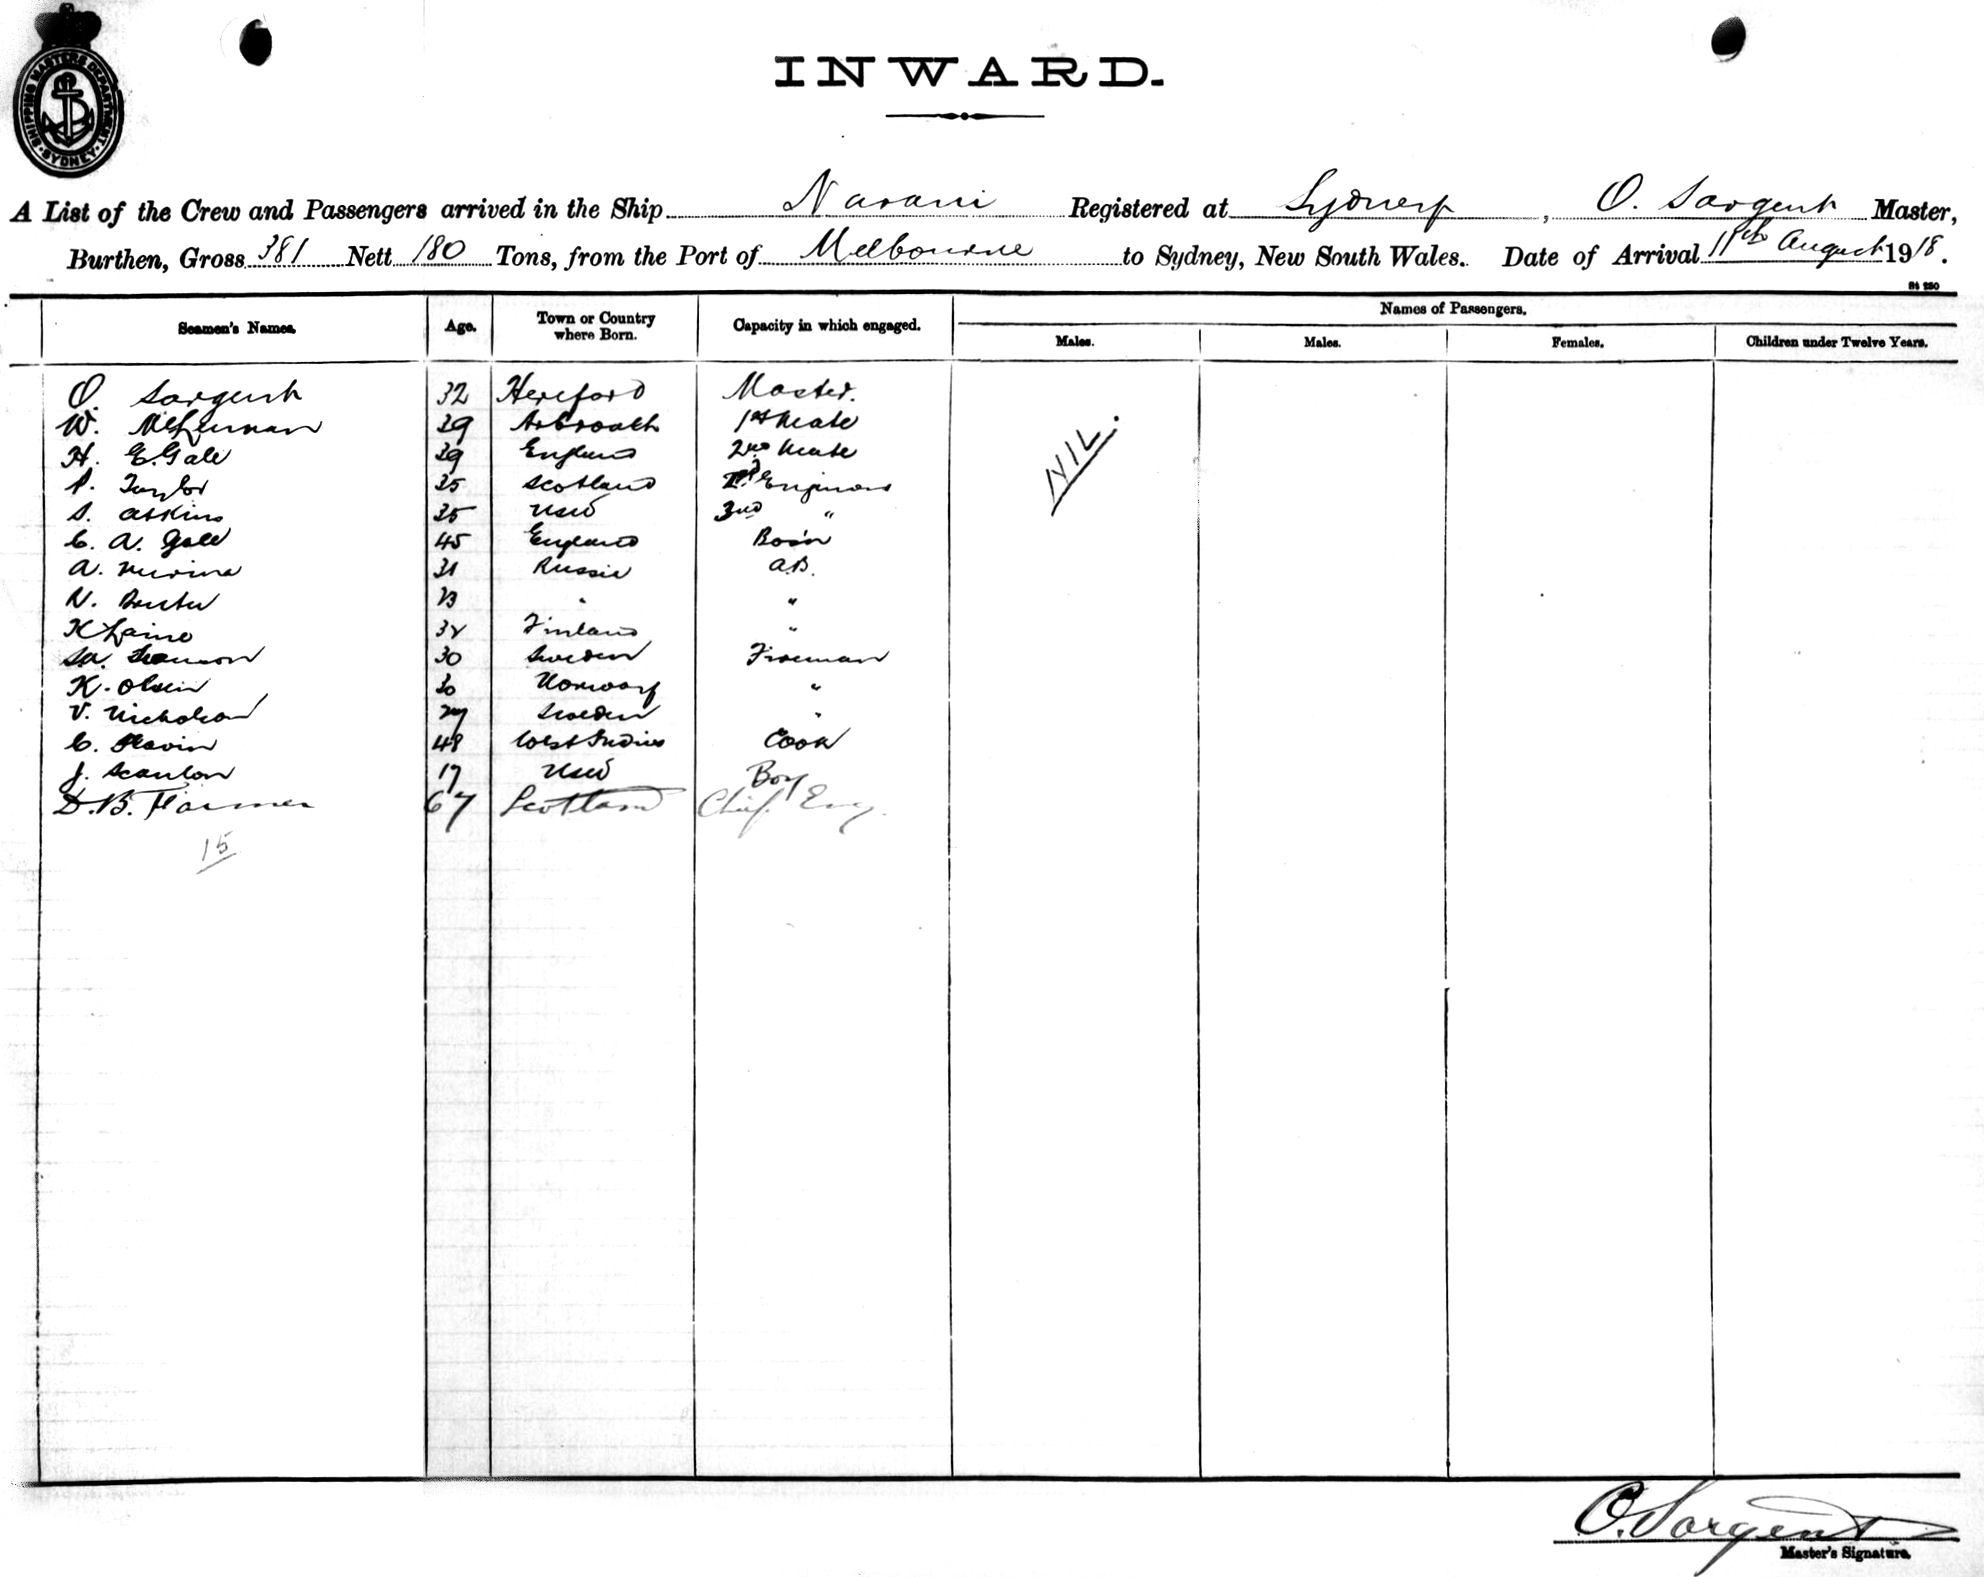 SHIPPING MASTERS DEPARTMENT
SYDNEY
INWARD.
A List of the Crew and Passengers arrived in the Ship Narani Registered at Sydney, O. Sargent Master,
Burthen, Gross 381 Nett 180 Tons, from the Port of Melbourne to Sydney, New South Wales. Date of Arrival 11th August 1918.
St 250
Seamen's Names. Age. Town or Country where Born. Capacity in which engaged. Names of Passengers.
Males. Males. Females. Children under Twelve Years.
O. Sargent 32 Hereford Master.
W. McLennan 39 Arbroath 1st Mate
H. E. Gale 39 England 2nd Mate
NIL.
P. Taylor 35 Scotland 2nd Engineer
S. Atkins 35 NSW 3rd "
C. A. Gale 45 England Bosn
A. Murina 31 Russia A.B.
N. 23 " "
K Laine Finland "
Swanson 30 Sweden Fireman
K. Olsen 30 Norway "
V. Nicholson 27 Sweden "
C. Slavin 48 West Indies Cook
J. Scanlon 17 NSW Boy
D. B. Farmer 67 Scotland Chief. Eng.
15
O. Sargent
Master's Signature.